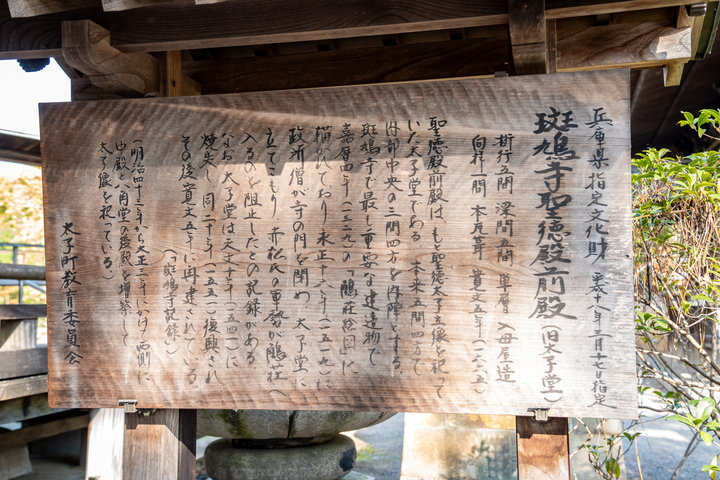 兵庫県指定文化財 平成十八年三月十七日指定
斑鳩寺聖徳殿前殿(旧太子堂)
桁行五間 梁間五間 単層 入母屋造
向拝一間 本瓦葺 寛文五年(一六六五)
聖徳殿前殿は、もと聖徳太子立像を祀って
いた太子堂である 本来五間四方で
内部中央の三間四方を内陣とする
斑鳩寺で最も重要な建造物で
嘉暦四年(一三二九)の「鵤荘絵図」に
描かれており 永正十六年(一五一九)に
政所僧が寺の門を閉め 太子堂に
立てこもり 赤松氏の軍勢が鵤荘へ
入るのを阻止したとの記録がある
なお 太子堂は天文十年(一五四一)に
焼失し 同二十年(一五五一)復興され
その後寛文五年に再建されている
(「斑鳩寺記録」)
(明治四十二年から大正二年にかけて 西側に
中殿と八角堂の後殿を増築して
太子像を祀っている)
太子町教育委員会